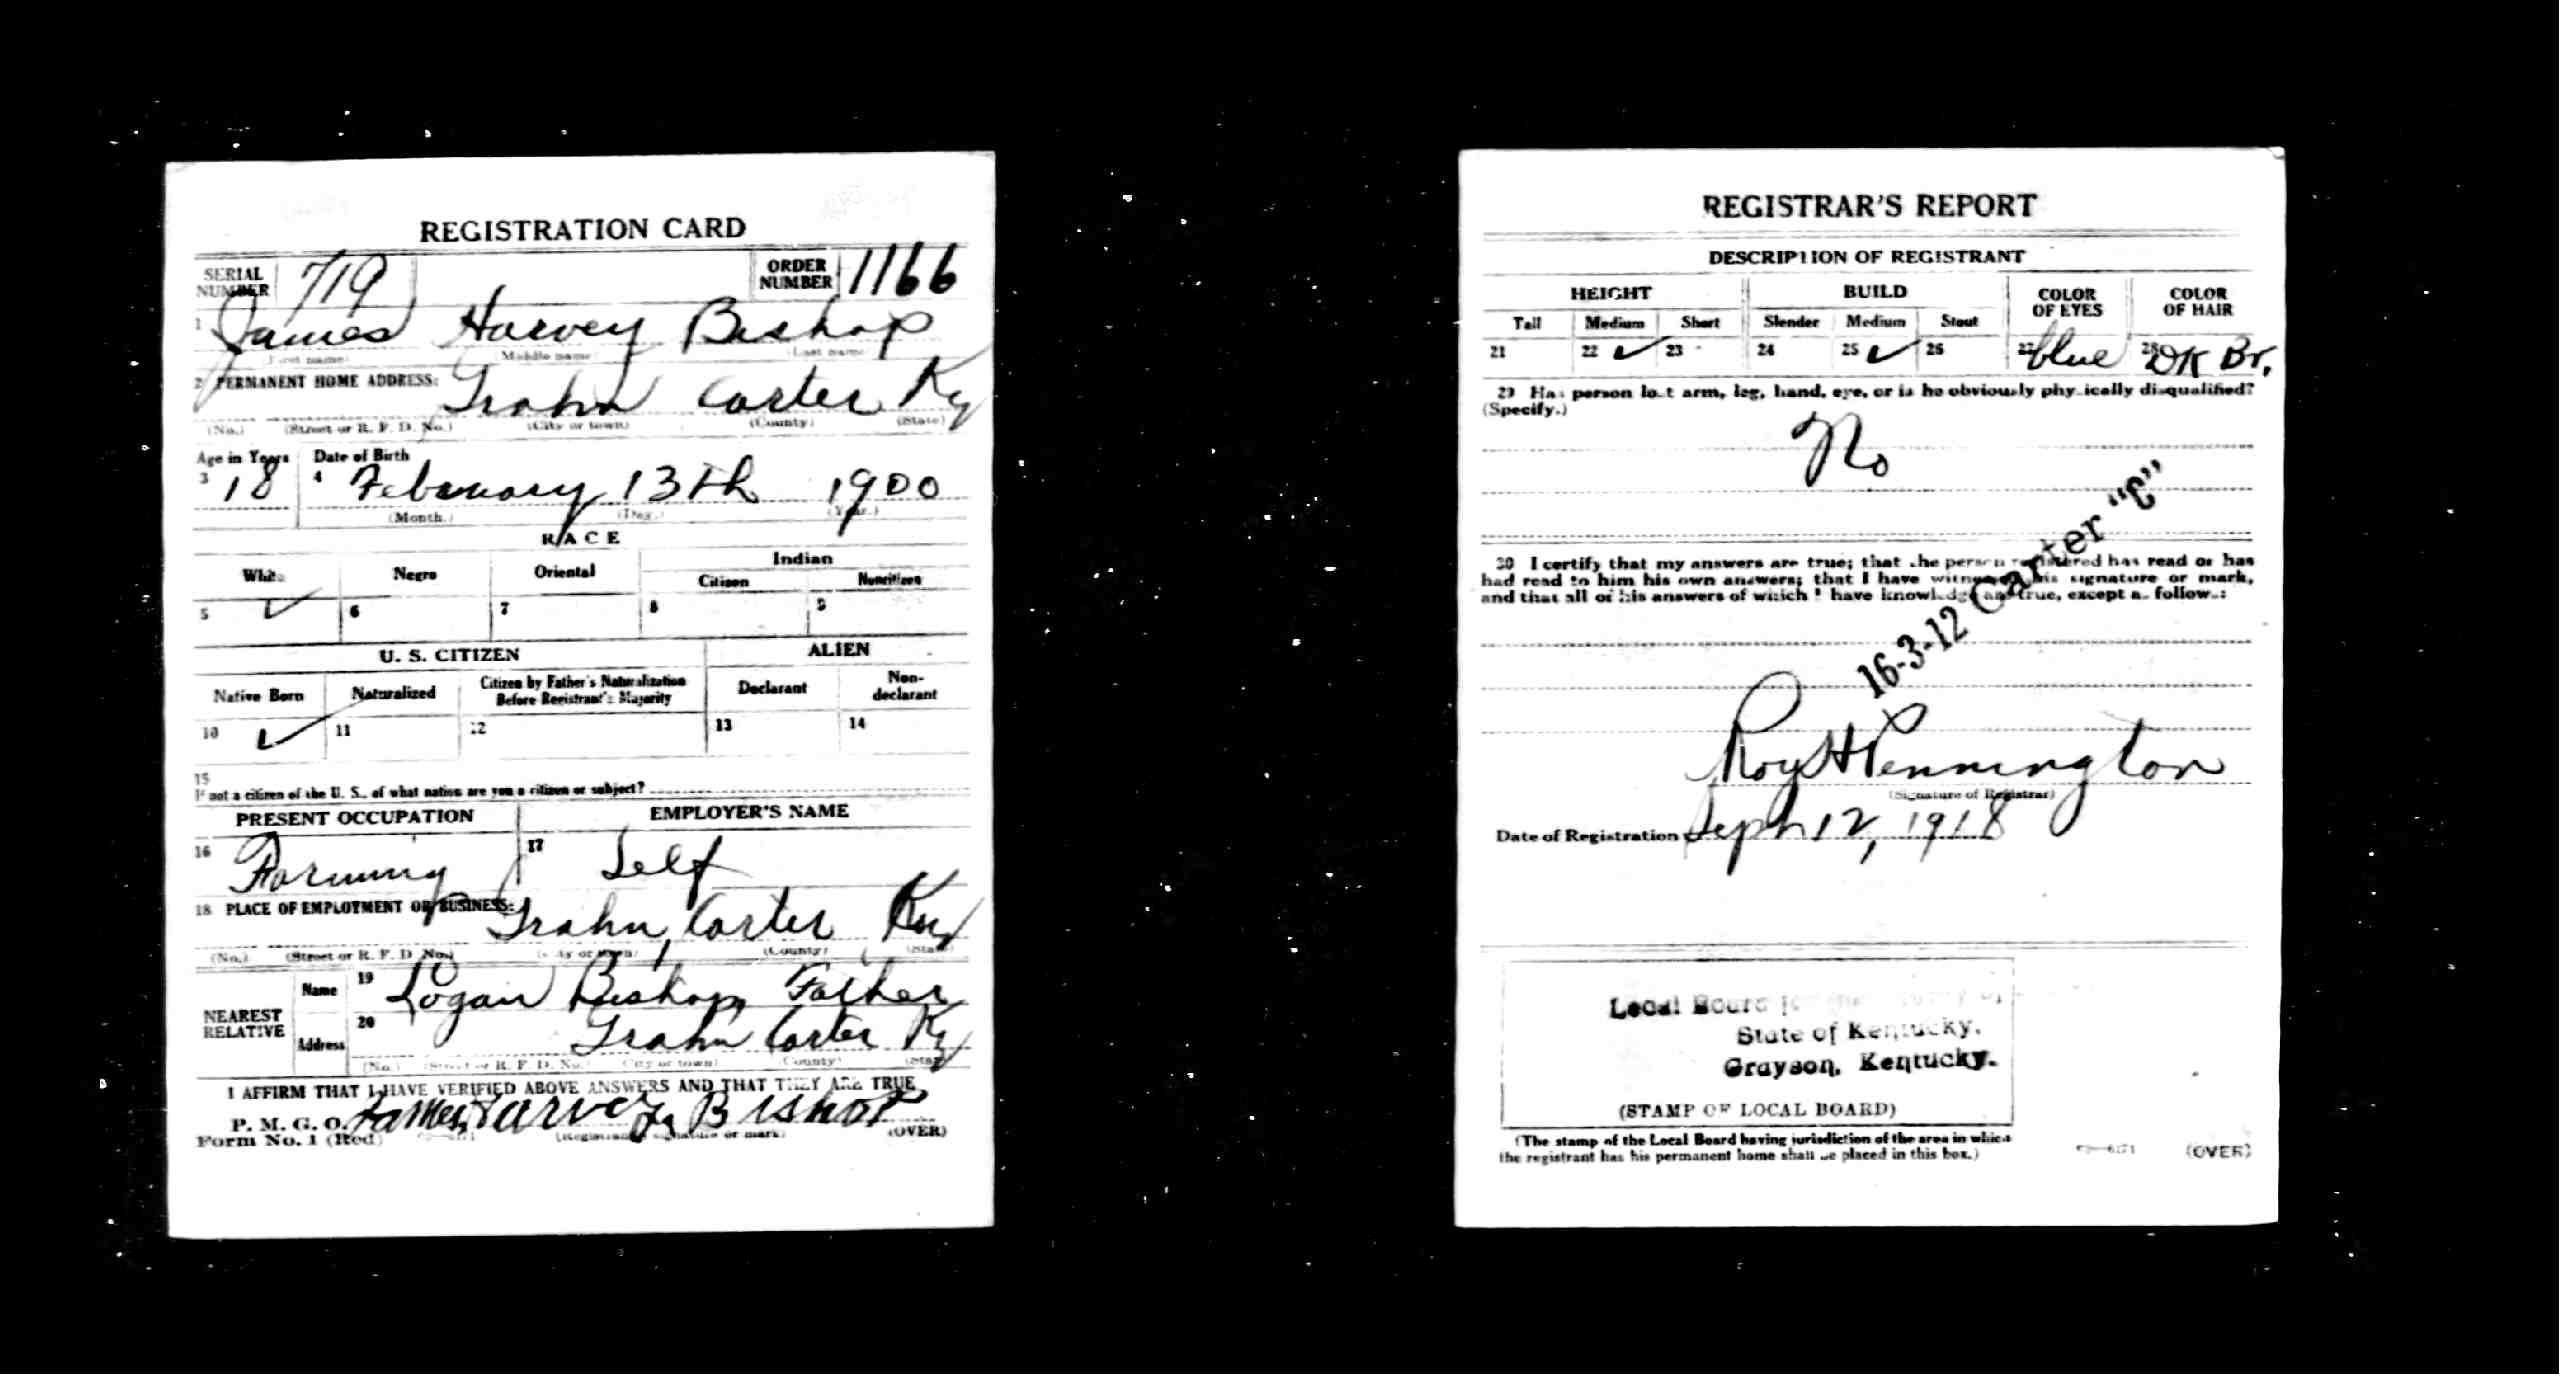 REGISTRATION CARD
SERIAL NUMBER 719 ORDER NUMBER 1166
1 James Harvey Bishop
(First name) (Middle name) (Last name)
2 PERMANENT HOME ADDRESS: Grahn Carter Ky
(No.) (Street or R. F. D. No.) (City or town) (County) (State)
Age in Years Date of Birth
3 18 4 February 13th 1900
(Month.) (Day.) (Year.)
RACE
White Negro Oriental Indian
Citizen Noncitizen
5 ✓ 6 7 8 9
U. S. CITIZEN ALIEN
Native Born Naturalized Citizen by Father's Naturalization Before Registrant's Majority Declarant Non-declarant
10 ✓ 11 12 13 14
15
If not a citizen of the U. S., of what nation are you a citizen or subject?
PRESENT OCCUPATION EMPLOYER'S NAME
16 Farming 17 Self
18 PLACE OF EMPLOYMENT OR BUSINESS: Grahn, Carter Ky
(No.) (Street or R. F. D. No.) (City or town) (County) (State)
NEAREST RELATIVE Name 19 Logan Bishop Father
Address 20 Grahn Carter Ky
(No.) (Street or R. F. D. No.) (City or town) (County) (State)
I AFFIRM THAT I HAVE VERIFIED ABOVE ANSWERS AND THAT THEY ARE TRUE
P. M. G. O. James Harvey Bishop
Form No. 1 (Red) (Registrant's signature or mark) (OVER)
REGISTRAR'S REPORT
DESCRIPTION OF REGISTRANT
HEIGHT BUILD COLOR OF EYES COLOR OF HAIR
Tall Medium Short Slender Medium Stout
21 22 ✓ 23 24 25 ✓ 26 27 blue 28 DK Br.
29 Has person lost arm, leg, hand, eye, or is he obviously physically disqualified?
(Specify.)
No
30 I certify that my answers are true; that the person registered has read or has
had read to him his own answers; that I have witnessed his signature or mark,
and that all of his answers of which I have knowledge are true, except as follows:
16-3-12 Carter "C"
Roy H Pennington
(Signature of Registrar)
Date of Registration Sept 12, 1918
Local Board for
State of Kentucky.
Grayson, Kentucky.
(STAMP OF LOCAL BOARD)
(The stamp of the Local Board having jurisdiction of the area in which
the registrant has his permanent home shall be placed in this box.)
(OVER)